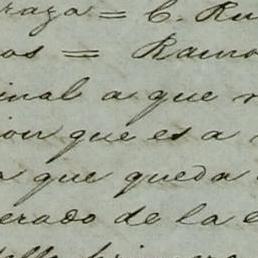 raza = C. Ru
os = Ramo
inal a que
ion que es a
a que queda
erado de la